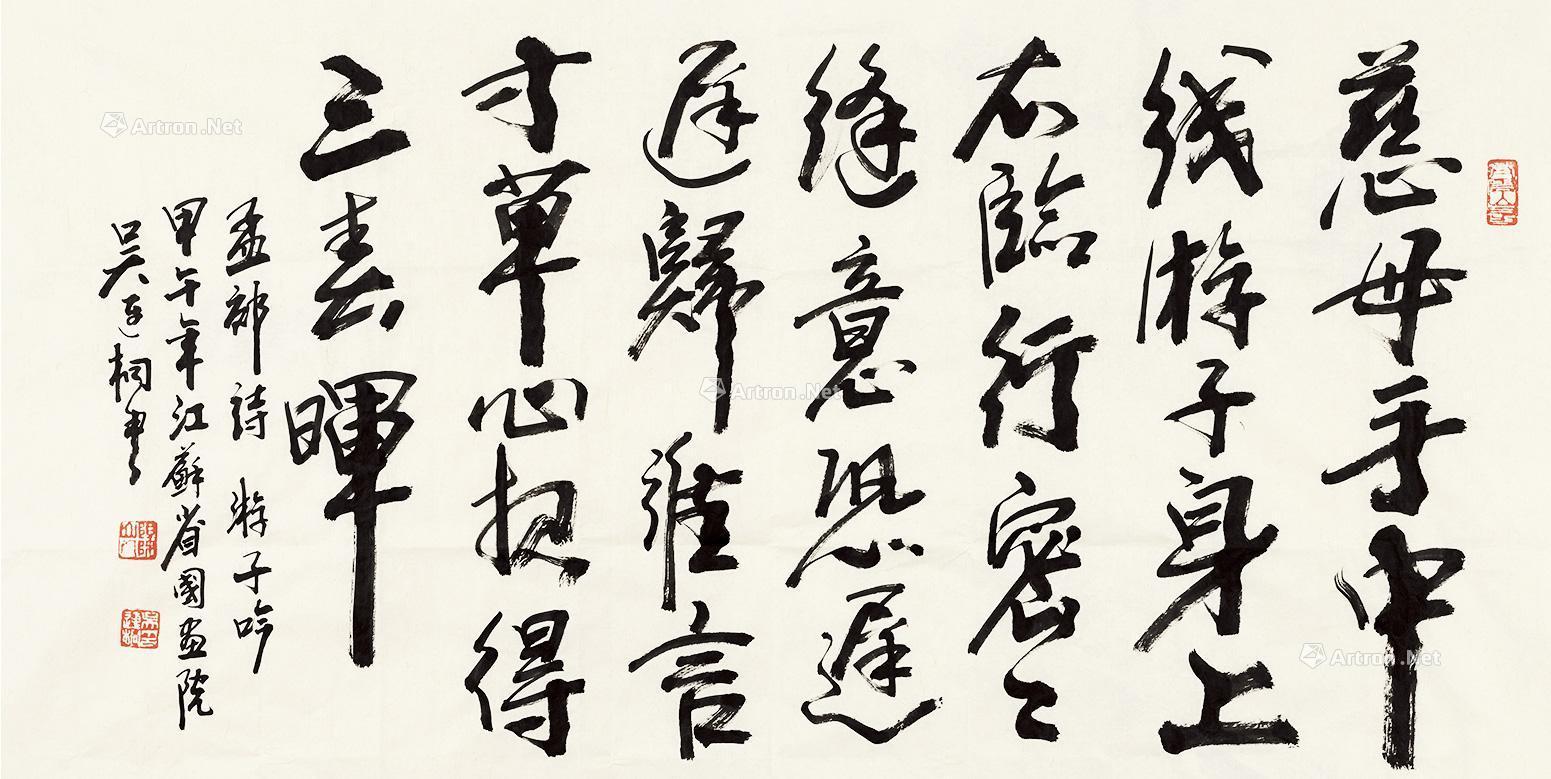 慈母手中
线游子身上
衣臨行密〻
縫意恐遲
遲歸誰言
寸草心报得
三春暉
孟郊詩 游子吟
甲午年江蘇省國画院
吴建桐书
Artron.Net
Artron.Net
Artron.Net